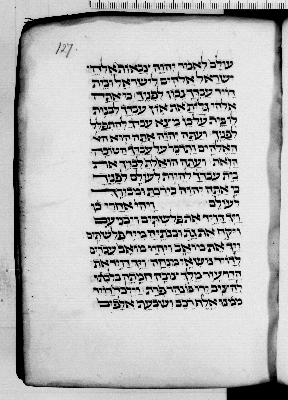 127.
עולם לאמר יהוה צבאות אלהי
ישראל אלהים לישראל ובית
דויד עבדך נכון לפניך כי אתה
אלהי גלית את אזן עבדך לבנות
לו בית על כן מצא עבדך להתפלל
לפניך ועתה יהוה אתה הוא
האלהים ותדבר על עבדך הטובה
הזאת ועתה הואלת לברך את
בית עבדך להיות לעולם לפניך
כי אתה יהוה ברכת ומברך
לעולם ויהי אחרי כן
ויך דויד את פלשתים ויכניעם
ויקח את גת ובנתיה מיד פלשתים
ויך את מואב ויהיו מואב עבדים
לדויד נושאי מנחה ויך דויד את
הדרעזר מלך צובה חמתה בלכתו
להציב ידו בנהר פרת וילכד דויד
ממנו אלף רכב ושבעת אלפים